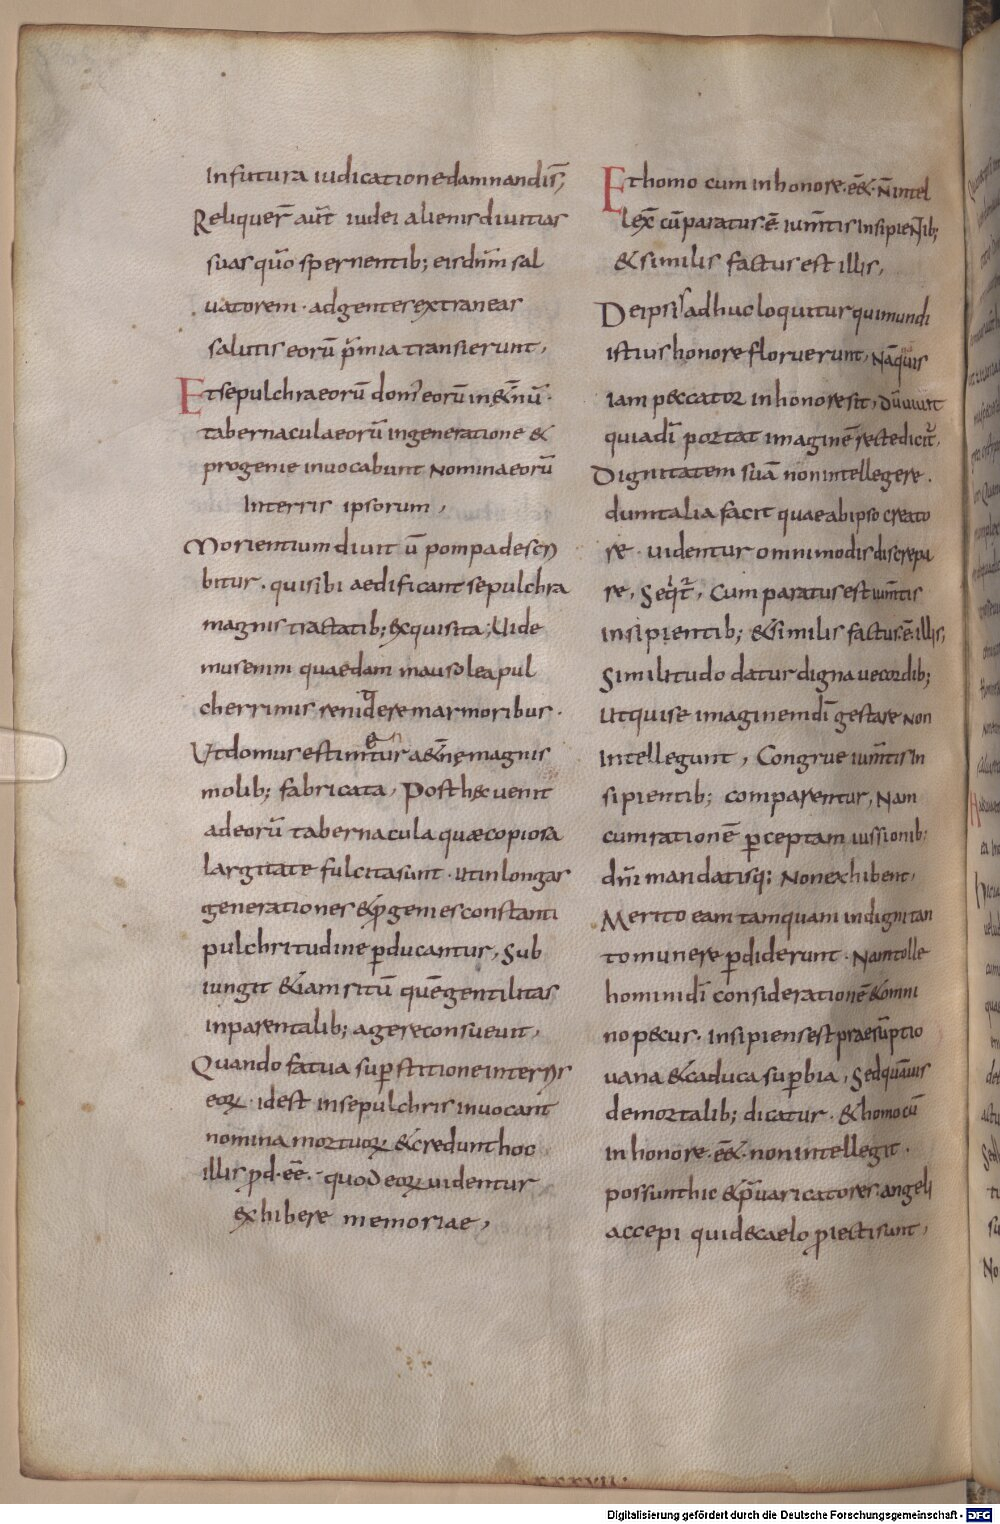 Infutura iudicationedamnandis̄;
Reliquer̄ aut̄ iudei alienisdiuitias
suas quo̅ spernentib; eisdn̄m sal
uatorem · adgentesextraneas
salutis eorū p̄mia transierunt,
Etsepulchraeorū dom' eorūin&n̄ū ·
tabernaculaeorū ingeneratione &
progenie inuocabunt Nominaeorū
Interris ipsorum,
Morientium diuit ū pompadescri
bitur . quisibi aedificantsepulchra
magnis tractatib; exquisita; Uide
musenim quaedam mausoleapul
cherrimis renidere marmoribus ·
Utdomusestimetur a&n̄nemagnis
molib; fabricata, Posth&c uenit
adeorū tabernacula quæcopiosa
largitate fulcitasunt · utinlongas
generationes &p̄geniesconstanti
pulchritudine p̱ducantur, Sub
iungit &iamritū quē gentilitas
inparentalib; agereconsueuit,
Quando fatua sup̱stitioneinterris
eoꝝ · idest insepulchris inuocant
nomina mortuoꝝ &credunthoc
illis p̱d·eē · quodeoꝝ uidentur
exhibere memoriae,
Ethomo cum inhonore·eē&·n̄ intel
lex̄ cūparatus·ē· ium̄tis insipieNtib;
&similis factus est illis,
Deipsis adhucloquitur quimundi
istius honore floruerunt, Nāquis
iam p&ccator inhonoresit, dūuiuit
quiadī portat imaginē rectedicit̄,
Dignitatem suā nonintellegere .
dumtalia facit quaeabipso creato
re · uidentur omnimodisdiscrepa
re, Seqit̄, Cum paratusest ium̄tis
insipientib; &similis factus·ē·illis,
Similitudo datur digna uecordib;
Utquise imaginemdī gestare non
intellegunt, Congrue ium̄tis in
sipientib; comparentur, Nam
cumrationē p̱ceptam iussionib;
dn̄i mandatisq; Nonexhibent,
Merito eam tamquam indigni tan
tomunere p̱diderunt · Namtolle
hominidī considerationē &omni
nopecus· Insipiensestpraesūptio
uana &caduca sup̱bia, Sedquāuis
demortalib; dicatur · &homocū
inhonore·eē&· nonintellegit ·
possunthic &p̄uaricatores angeli
accepi quid&caelo p̱iectisunt,